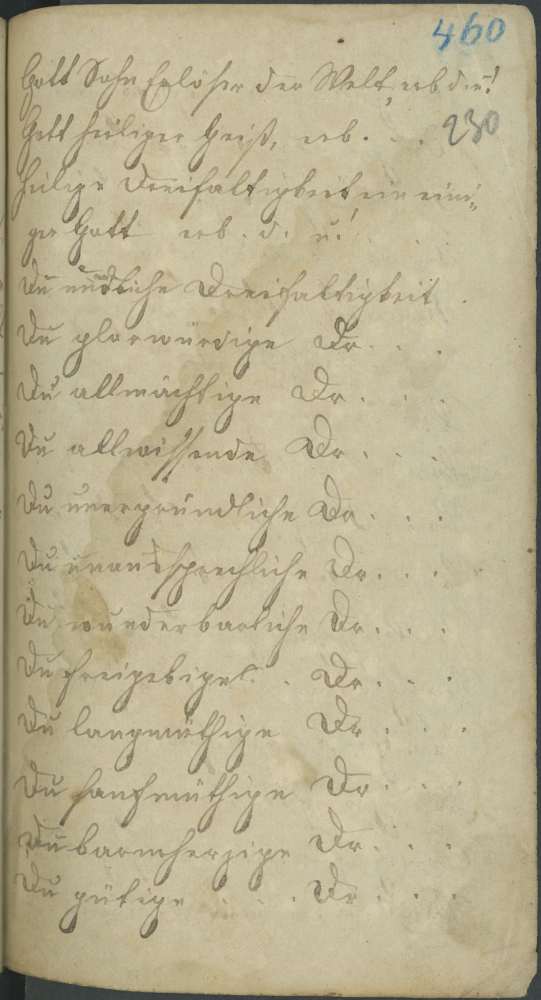 460
Gott Sohn Erlöser der Welt, erb. d. u.!
Gott heiliger Geist, erb. . . 230
heilige Dreifaltigkeit ein eini„
ger Gott erb. d. u.!
Du unendliche Dreifaltigkeit .
Du glorwürdige Dr. . .
Du allmächtige Dr. . .
Du allwissende Dr. . .
Du unergründliche Dr. . .
Du unaussprechliche Dr. . .
Du wunderbarliche Dr. . .
Du freigebige . . Dr. . .
Du langmüthige Dr. . .
Du sanfmüthige Dr. . .
Du barmherzige Dr. . .
Du gütige . . . Dr. . .